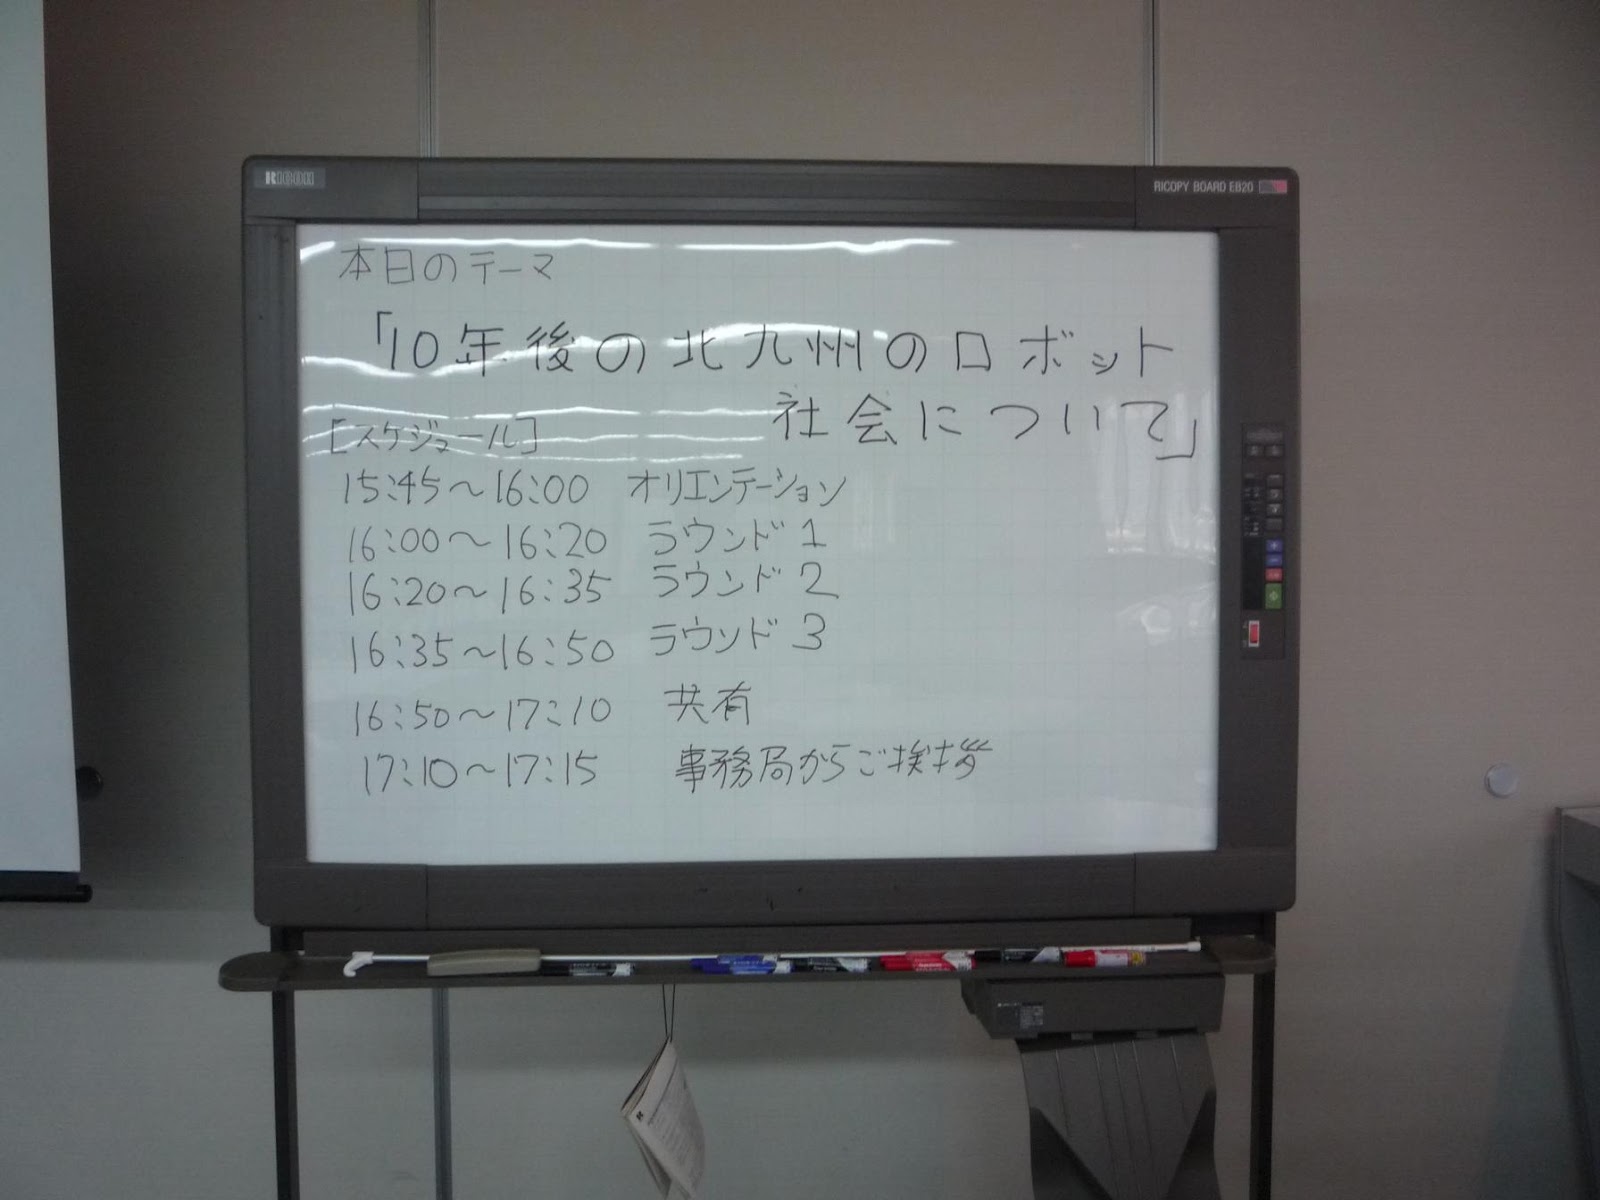 RICOH
RICOPY BOARD EB20
本日のテーマ
「10年後の北九州のロボット
社会について」
[スケジュール]
15:45〜16:00 オリエンテーション
16:00〜16:20 ラウンド1
16:20〜16:35 ラウンド2
16:35〜16:50 ラウンド3
16:50〜17:10 共有
17:10〜17:15 事務局からご挨拶